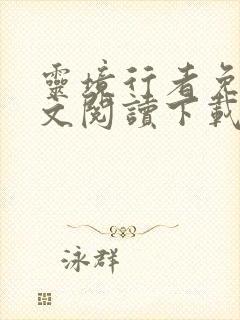 靈境行者免
文閱讀下載
泳群